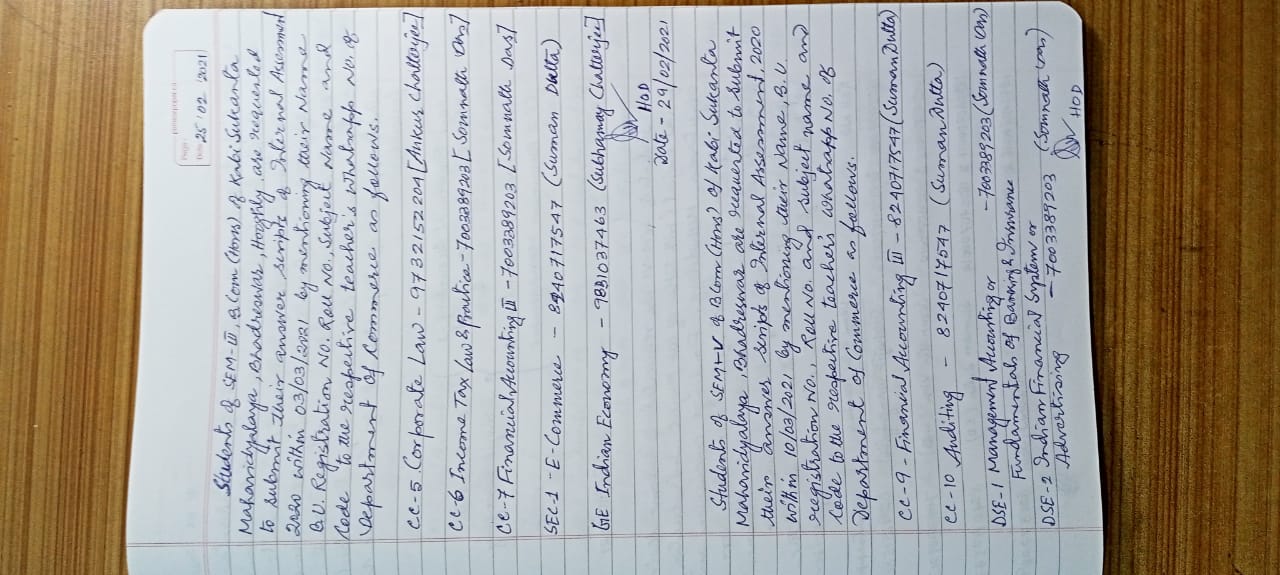 Page :
Date : 25/02/2021
Students of SEM-III B.Com (Hons) of Kabi Sukanta
Mahavidyalaya, Bhadreswar, Hooghly are requested
to submit their answer scripts of Internal Assessment
2020 within 03/03/2021 by mentioning their Name
B.U. Registration No. Roll No., Subject Name and
Code to the respective teacher's Whatsapp No. of
Department of Commerce as follows.
CC-5 Corporate Law - 9732152204 [Ankur Chatterjee]
CC-6 Income Tax Law & Practice - 7003389203 [Somnath Das]
CC-7 Financial Accounting III - 7003389203 [Somnath Das]
SEC-1 - E-Commerce - 8240717547 (Suman Dutta)
GE Indian Economy - 9831037463 (Subhamay Chatterjee)
HOD
Date - 29/02/2021
Students of SEM-V of B.Com (Hons) of Kabi Sukanta
Mahavidyalaya, Bhadreswar are requested to submit
their answer scripts of Internal Assessment, 2020
within 10/03/2021 by mentioning their Name, B.U.
Registration No., Roll No. and subject name and
Code to the respective teacher's whatsapp No. of
Department of Commerce as follows.
CC-9 - Financial Accounting III - 8240717547 (Suman Dutta)
CC-10 Auditing - 8240717547 (Suman Dutta)
DSE-1 Management Accounting or
Fundamentals of Banking & Insurance - 7003389203 (Somnath Das)
DSE-2 Indian Financial System or
Advertising - 7003389203 (Somnath Das)
HOD